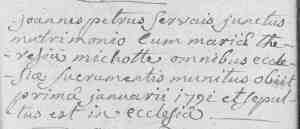 joannes petrus servais junctus
matrimonio cum mariâ the-
-resiâ michotte omnibus eccle-
-siæ sacramentis munitus obiit
primâ januarii 1791 et sepul-
-tus est in ecclesiâ